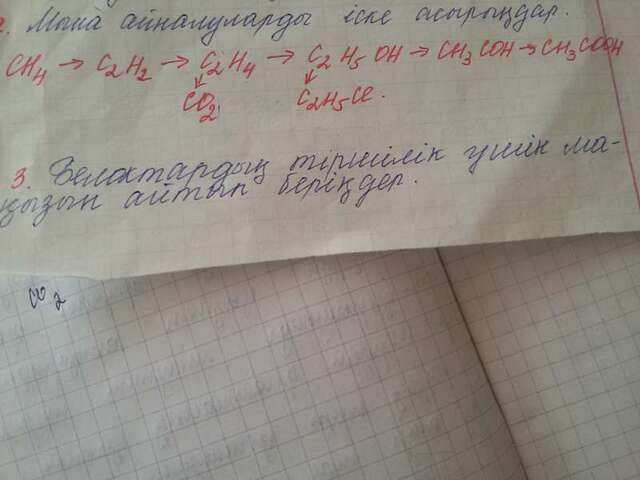 2. Мына айналуларды іске асырыңдар.
CH4 → C2H2 → C2H4 → C2H5OH → CH3COH → CH3COOH
↓ ↓
CO2 C2H5-Cl.
3. Белоктардың тіршілік үшін ма-
ңызын айтып беріңдер.
CO2